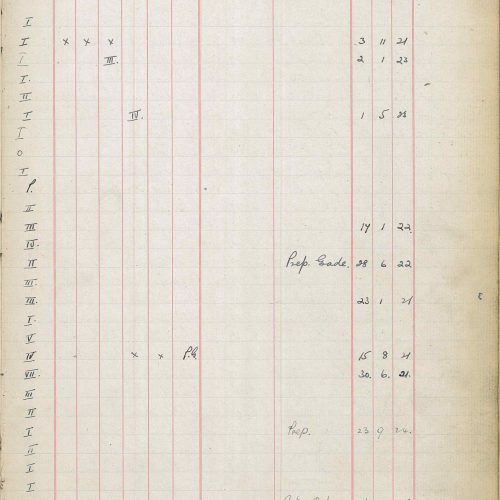 I
I × × × 3 11 21
I III. 2 1 23
I.
II
I IV. 1 5 23
I
0
I
P.
II
III 14 1 22.
IV.
II Prep. Grade. 28 6 22
III.
III. 23 1 21
I.
V
IV × × P.G 15 8 21
VII. 30. 6. 21.
III
II
I Prep. 23 9 24.
II
I
I